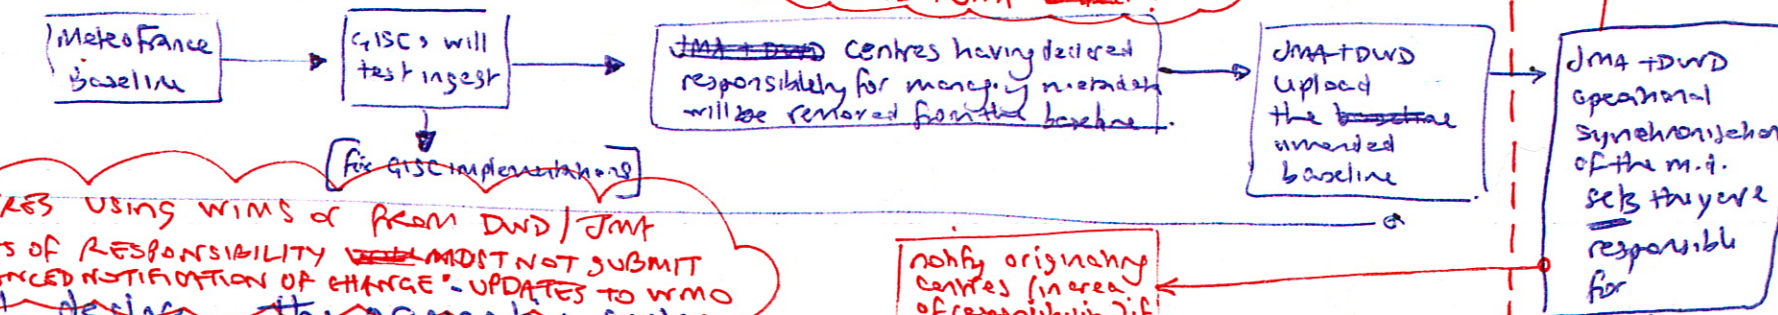 MeteoFrance
Baseline
GISCs will
test ingest
JMA + DWD centres having declared
responsibility for managing metadata
will be removed from the baseline.
JMA+DWD
upload
the baseline
amended
baseline
JMA +DWD
operational
synchronisation
of the m.d.
sets they are
responsible
for
[fix GISC implementations]
USING WIMS or FROM DWD/JMA
OF RESPONSIBILITY MUST NOT SUBMIT
NOTIFICATION OF CHANGE"- UPDATES TO WMO
notify originating
centres (in area
of responsibility) if